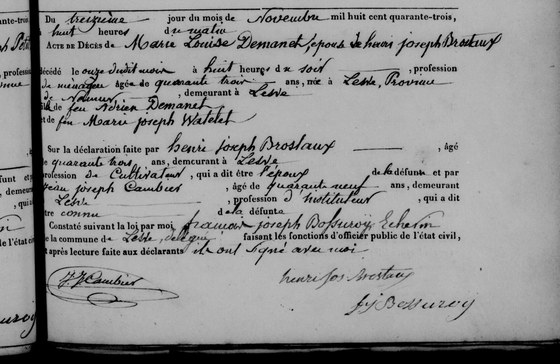 Du treizième jour du mois de Novembre mil huit cent quarante-trois,
à huit heures du matin
ACTE DE DÉCÈS de Marie Louise Demanet épouse de henri joseph Brostaux
décédé le onze dudit mois à huit heures du soir, profession
de ménagère âgée de quarante trois ans, née à Lesve, Province
de Namur, demeurant à Lesve
fille de feu Adrien Demanet
et de feu Marie joseph Watelet
Sur la déclaration faite par henri joseph Brostaux, âgé
de quarante trois ans, demeurant à Lesve
profession de Cultivateur, qui a dit être l'époux de la défunte et par
jean joseph Cambier, âgé de quarante neuf ans, demeurant à
Lesve, profession d'instituteur, qui a dit
être connu de la défunte
Constaté suivant la loi par moi françois joseph Bossuroy Echevin
de la commune de Lesve, délégué faisant les fonctions d'officier public de l'état civil,
et après lecture faite aux déclarants ils ont signé avec moi
J. J. Cambier
henri jos Brostaux
f j Bossuroy